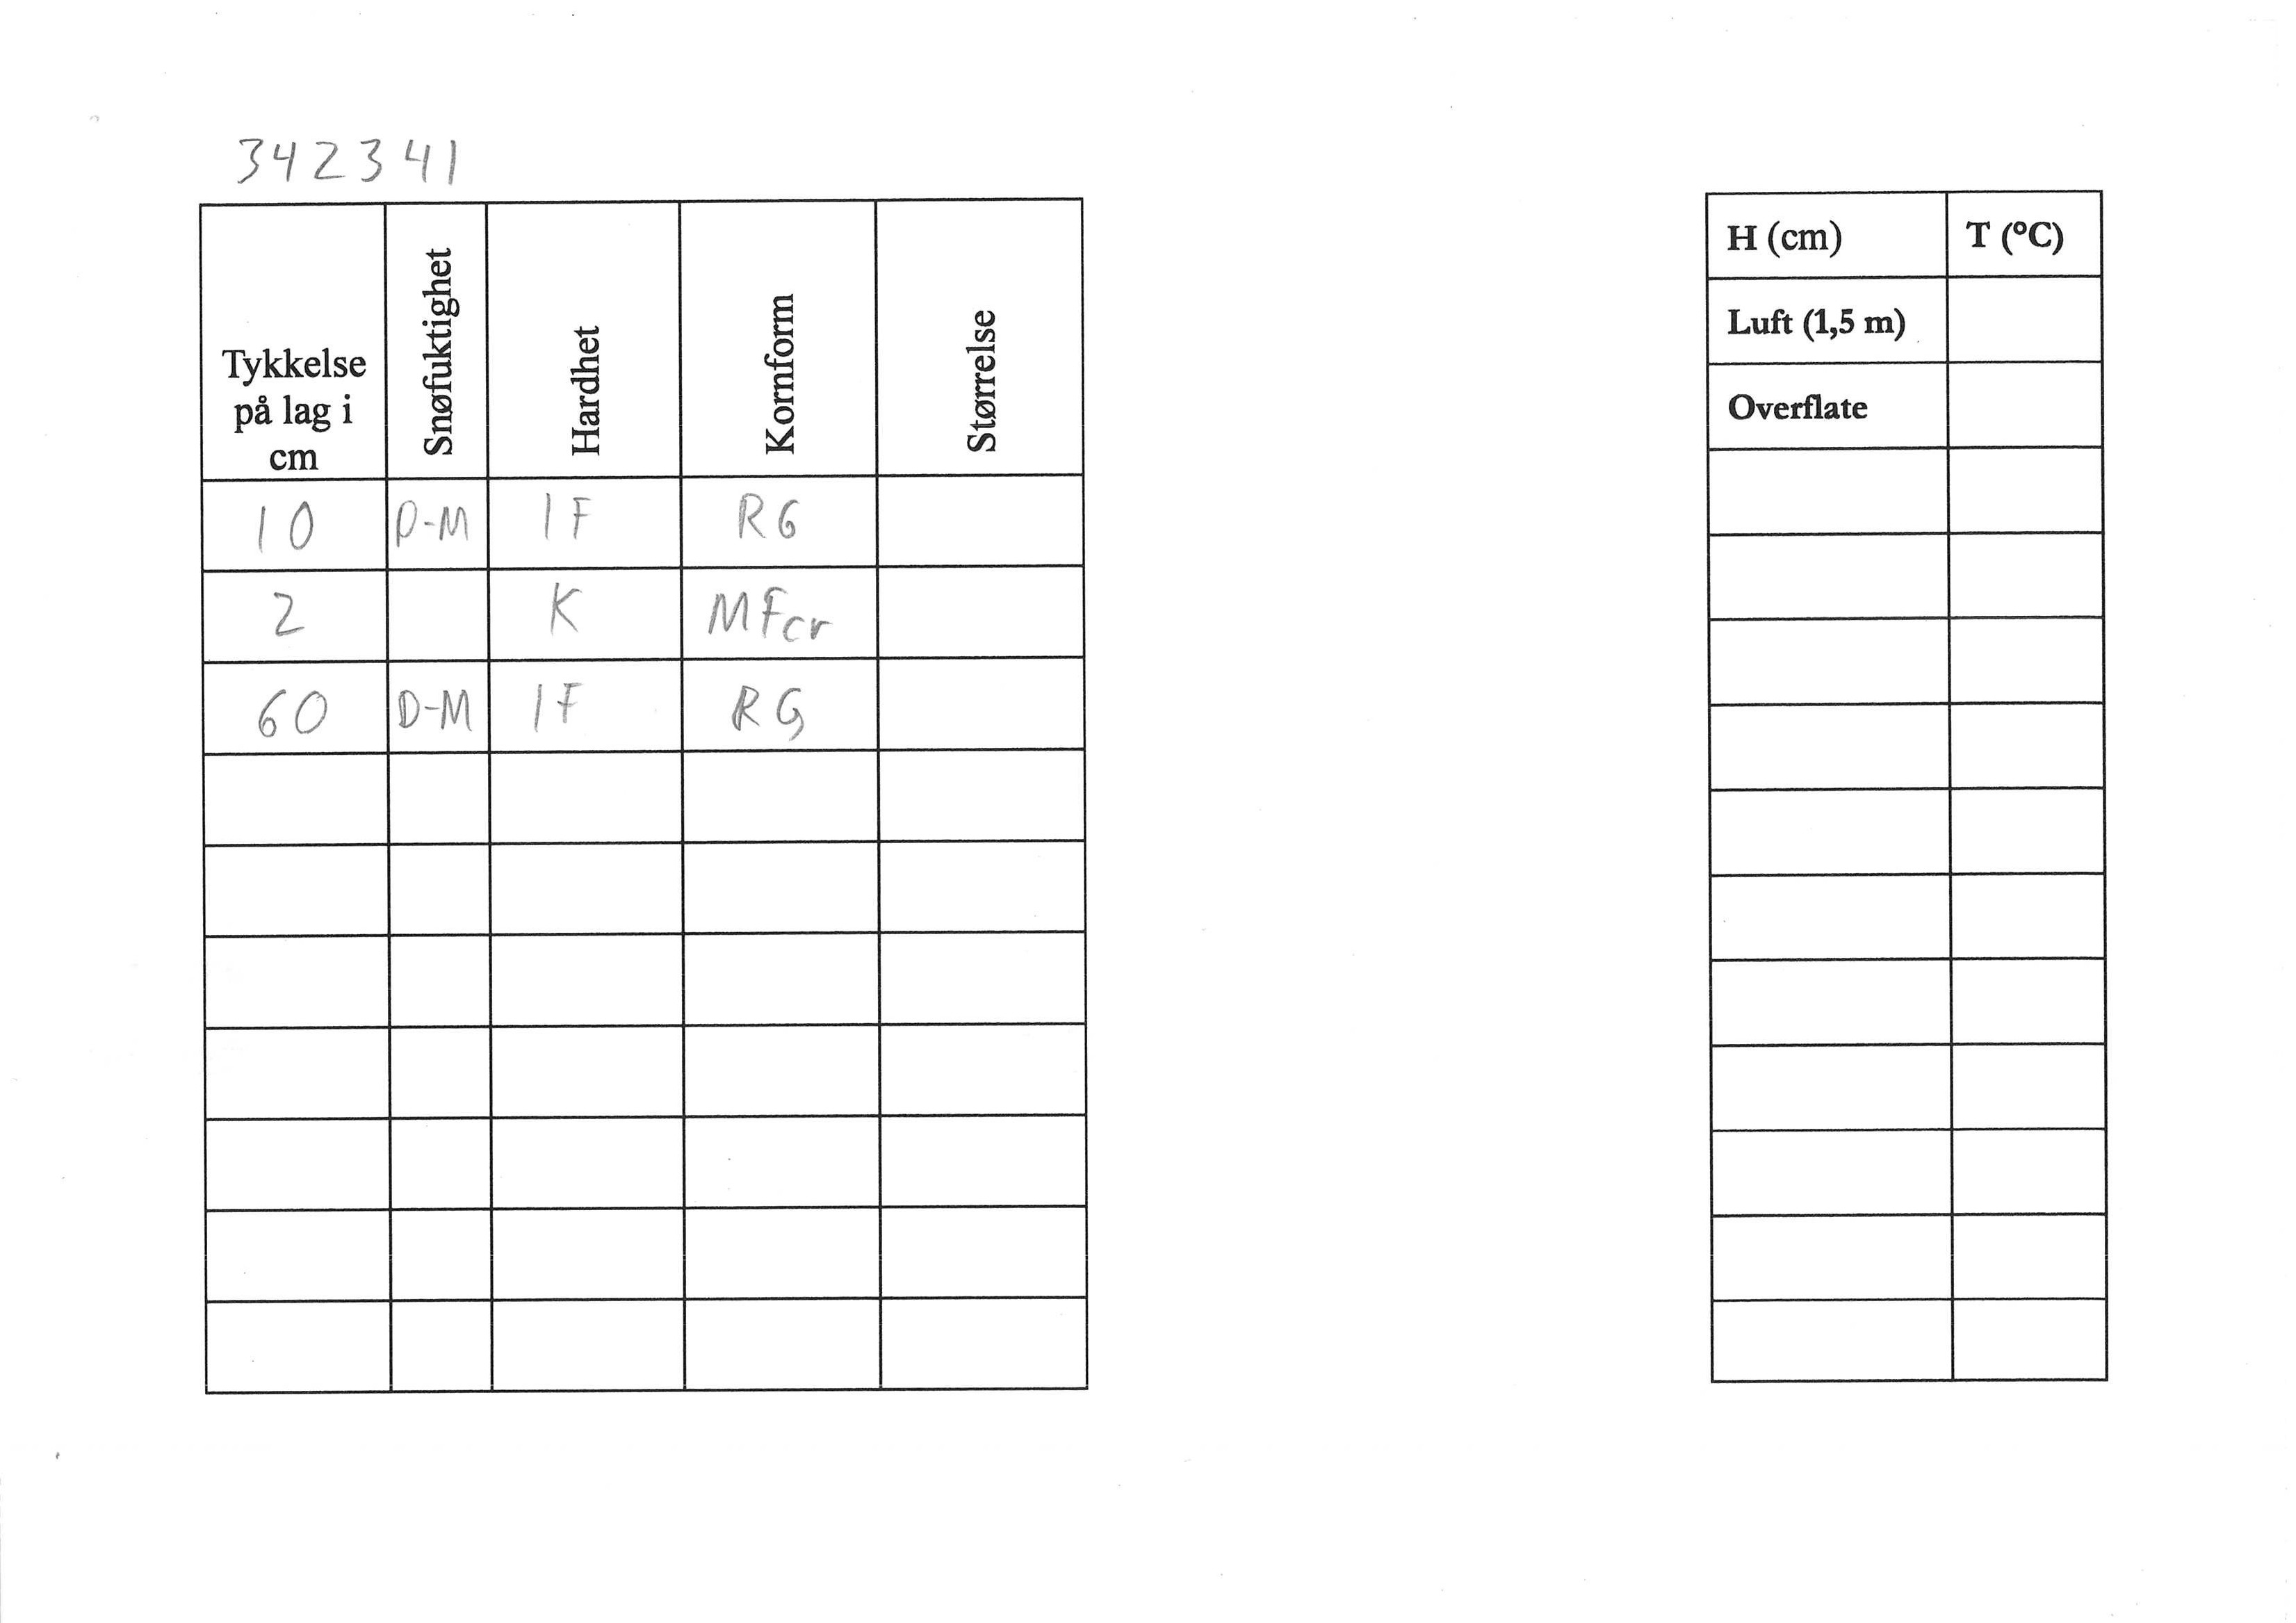 342341
Tykkelse på lag i cm Snøfuktighet Hardhet Kornform Størrelse
10 D-M 1F RG
2 K MFcr
60 D-M 1F RG
H (cm) T (°C)
Luft (1,5 m)
Overflate